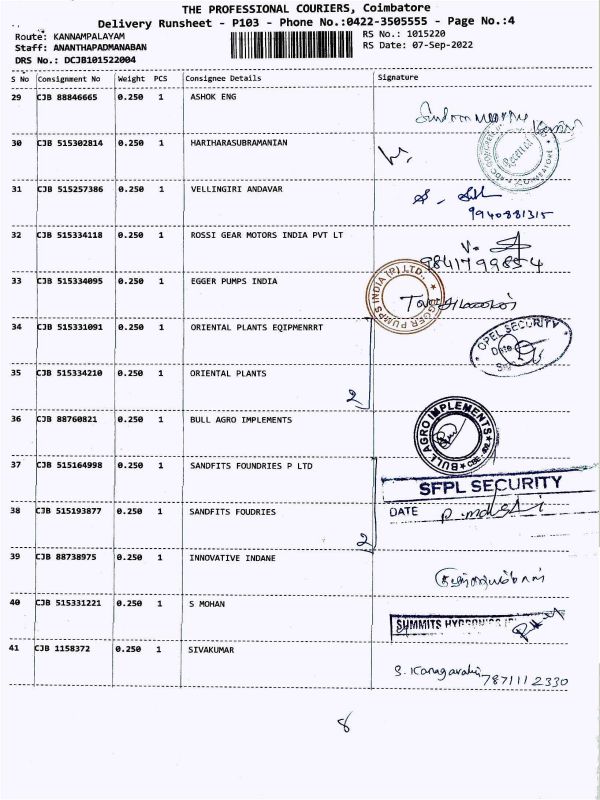 THE PROFESSIONAL COURIERS, Coimbatore
Delivery Runsheet - P103 - Phone No.:0422-3505555 - Page No.:4
Route: KANNAMPALAYAM
RS No.: 1015220
Staff: ANANTHAPADMANABAN
RS Date: 07-Sep-2022
DRS No.: DCJB101522004
S No Consignment No Weight PCS Consignee Details Signature
29 CJB 88846665 0.250 1 ASHOK ENG
30 CJB 515302814 0.250 1 HARIHARASUBRAMANIAN
Received
31 CJB 515257386 0.250 1 VELLINGIRI ANDAVAR
9940881315
32 CJB 515334118 0.250 1 ROSSI GEAR MOTORS INDIA PVT LT
9841799854
33 CJB 515334095 0.250 1 EGGER PUMPS INDIA
EGGER PUMPS INDIA (P) LTD.,
34 CJB 515331091 0.250 1 ORIENTAL PLANTS EQIPMENRRT
OPEL SECURITY
Date
35 CJB 515334210 0.250 1 ORIENTAL PLANTS
2
36 CJB 88760821 0.250 1 BULL AGRO IMPLEMENTS
BULL AGRO IMPLEMENTS
37 CJB 515164998 0.250 1 SANDFITS FOUNDRIES P LTD
SFPL SECURITY
38 CJB 515193877 0.250 1 SANDFITS FOUDRIES
DATE
2
39 CJB 88738975 0.250 1 INNOVATIVE INDANE
40 CJB 515331221 0.250 1 S MOHAN
SUMMITS
41 CJB 1158372 0.250 1 SIVAKUMAR
7871112330
8